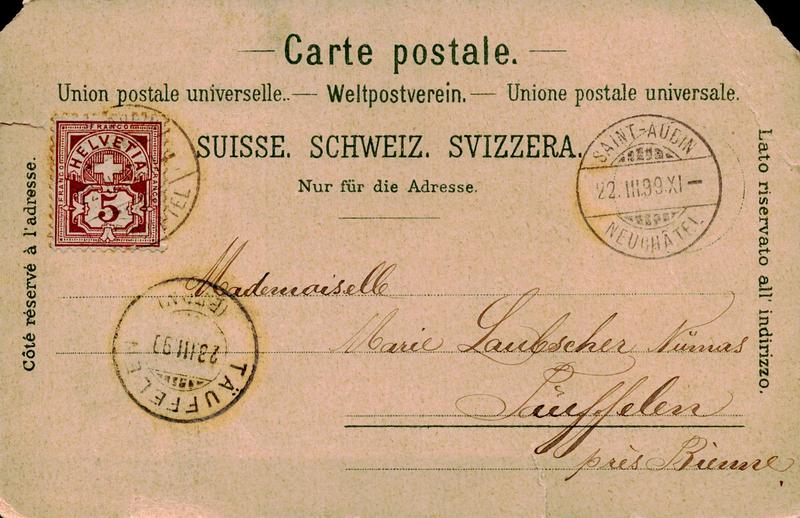 Carte postale.
Union postale universelle. — Weltpostverein. — Unione postale universale.
SUISSE. SCHWEIZ. SVIZZERA.
Nur für die Adresse.
Côté réservé à l'adresse.
Lato riservato all' indirizzo.
FRANCO
HELVETIA
FRANCO
FRANCO
5
SAINT-AUBIN
22.III.99.XI–
NEUCHÂTEL
TÄUFFELEN
(BERN)
Mademoiselle
Marie Laubscher Numas
Täuffelen
près Bienne